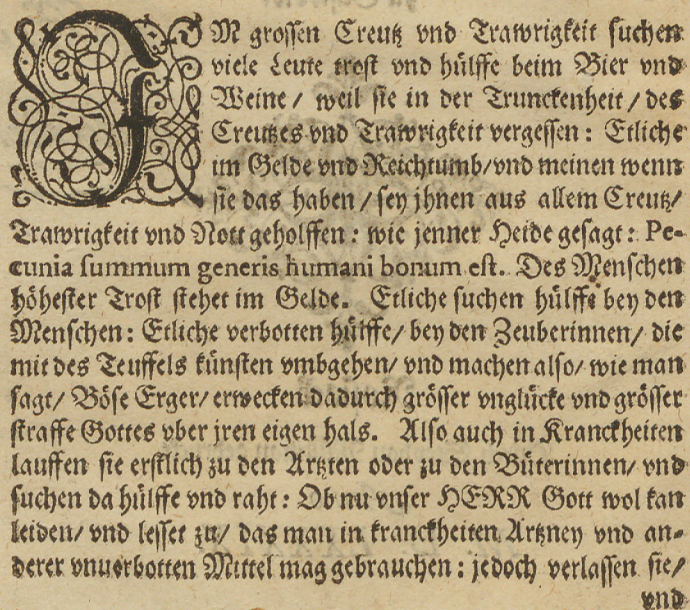 IM grossen Creutz vnd Trawrigkeit suchen
viele Leute trost vnd hülffe beim Bier vnd
Weine / weil sie in der Trunckenheit / des
Creutzes vnd Trawrigkeit vergessen : Etliche
im Gelde vnd Reichtumb/vnd meinen wenn
sie das haben / sey jhnen aus allem Creutz/
Trawrigkeit vnd Nott geholffen : wie jenner Heide gesagt : Pe-
cunia summum generis humani bonum est. Des Menschen
höhester Trost stehet im Gelde. Etliche suchen hülffe bey den
Menschen : Etliche verbotten hülffe/ bey den Zeuberinnen/ die
mit des Teuffels künsten vmbgehen/ vnd machen also/ wie man
sagt/ Böse Erger/ erwecken dadurch grösser vnglücke vnd grösser
straffe Gottes vber jren eigen hals. Also auch in Kranckheiten
lauffen sie erstlich zu den Artzten oder zu den Büterinnen/ vnd
suchen da hülffe vnd raht : Ob nu vnser HERR Gott wol kan
leiden/ vnd lesset zu/ das man in kranckheiten Artzney vnd an-
derer vnuerbotten Mittel mag gebrauchen : jedoch verlassen sie/
vnd